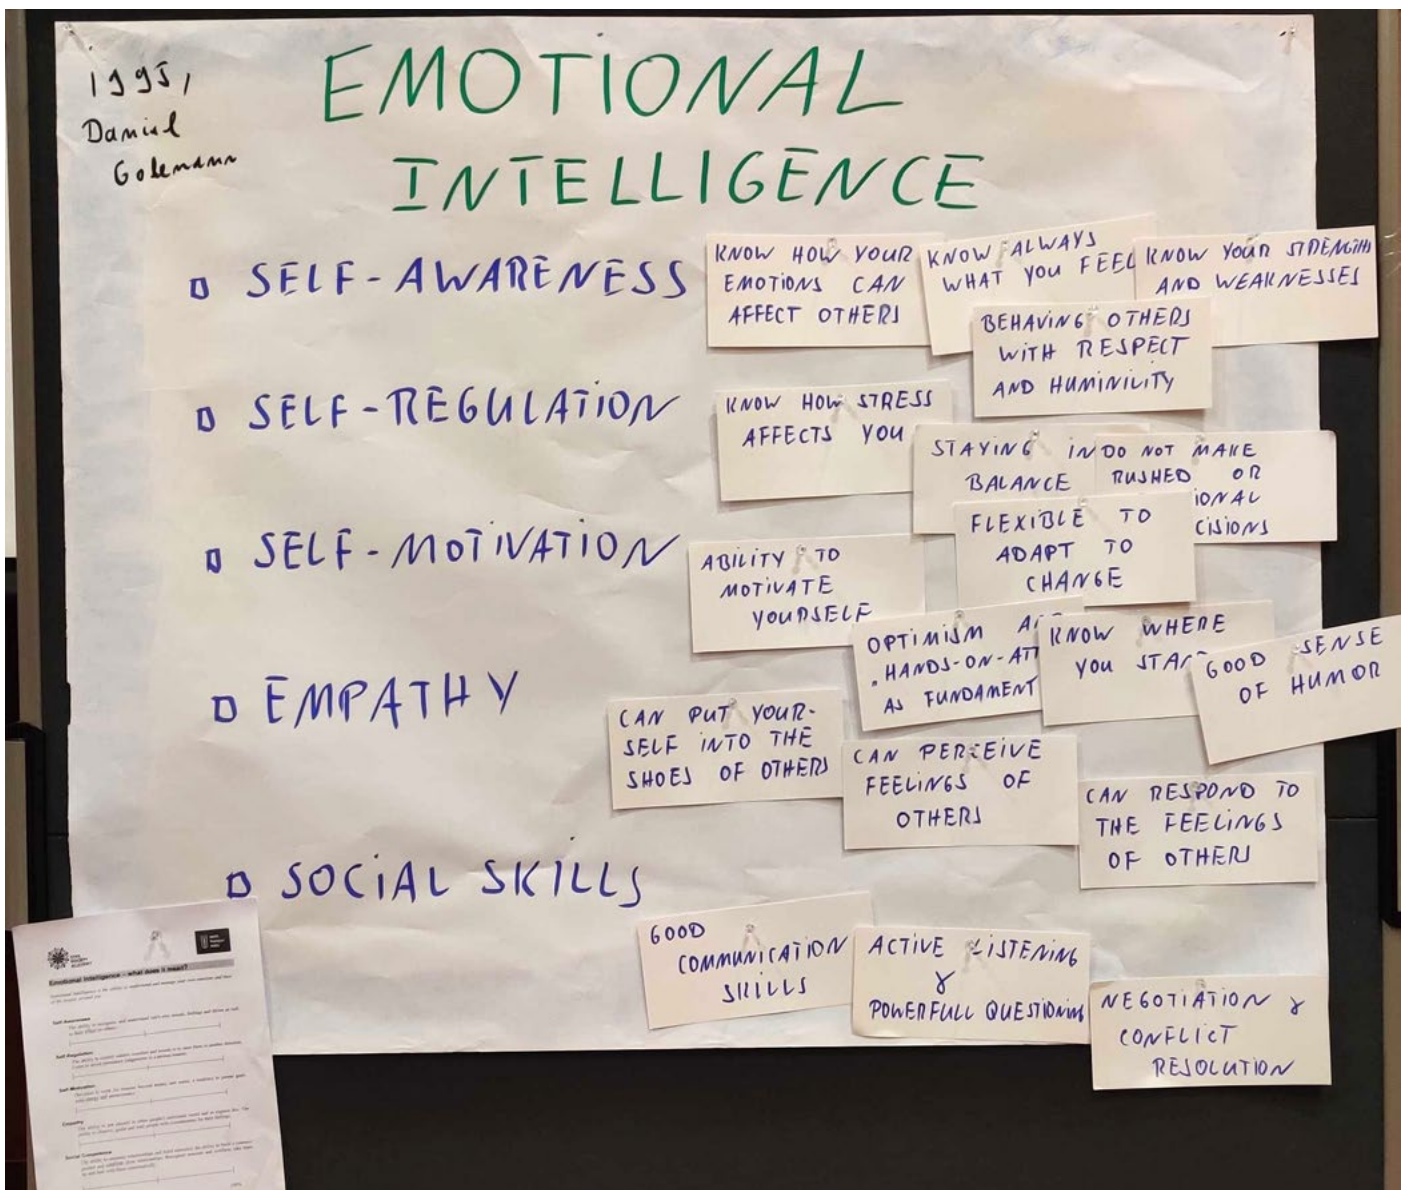 1995,
Daniel
Golemann
EMOTIONAL
INTELLIGENCE
SELF-AWARENESS
KNOW HOW YOUR
EMOTIONS CAN
AFFECT OTHERS
KNOW ALWAYS
WHAT YOU FEEL
KNOW YOUR STRENGTHS
AND WEAKNESSES
BEHAVING OTHERS
WITH RESPECT
AND HUMINILITY
SELF-REGULATION
KNOW HOW STRESS
AFFECTS YOU
STAYING IN
BALANCE
DO NOT MAKE
RUSHED OR
IONAL
CISIONS
FLEXIBLE TO
ADAPT TO
CHANGE
SELF-MOTIVATION
ABILITY TO
MOTIVATE
YOURSELF
OPTIMISM
HANDS-ON-ATT
AS FUNDAMENT
KNOW WHERE
YOU STA
GOOD SENSE
OF HUMOR
EMPATHY
CAN PUT YOUR-
SELF INTO THE
SHOES OF OTHERS
CAN PERCEIVE
FEELINGS OF
OTHERS
CAN RESPOND TO
THE FEELINGS
OF OTHERS
SOCIAL SKILLS
GOOD
COMMUNICATION
SKILLS
ACTIVE LISTENING
&
POWERFULL QUESTIONING
NEGOTIATION &
CONFLICT
RESOLUTION
Emotional Intelligence - what does it mean?
Self-Awareness
Self-Regulation
Self-Motivation
Empathy
Social Competence